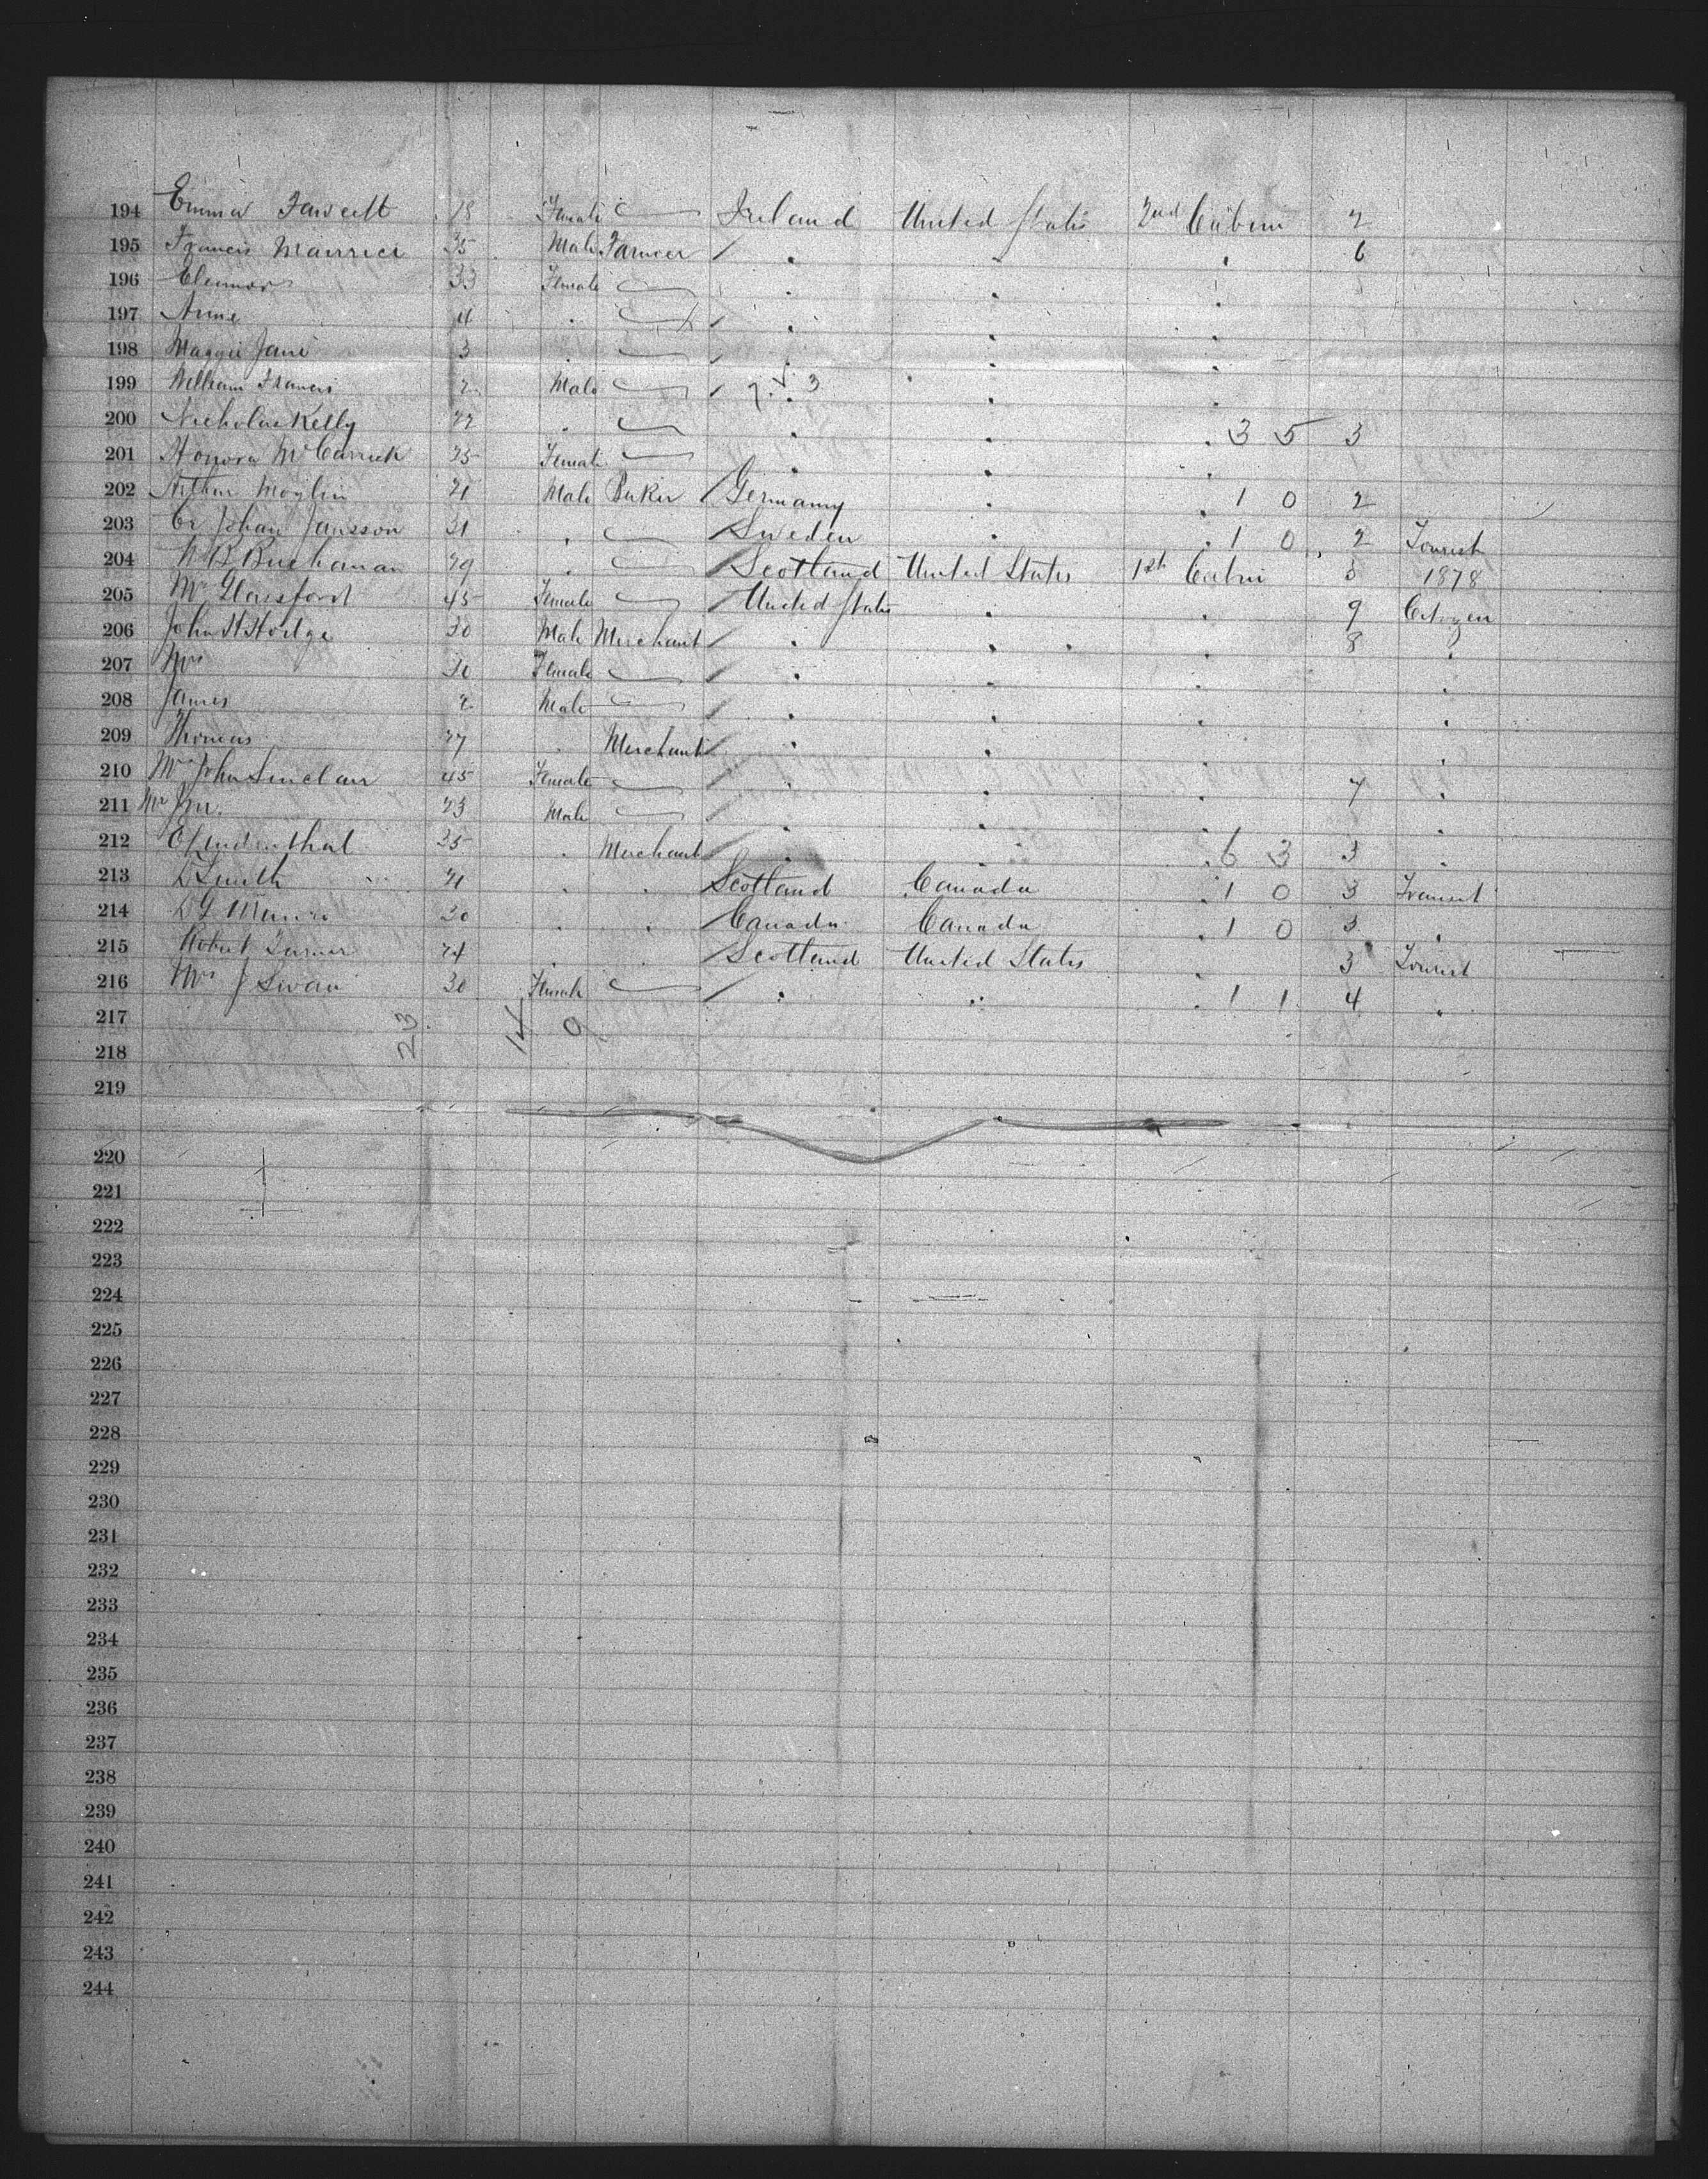 194 Emma Fawcett 18 Female Ireland United States 2nd Cabin 2
195 Francis Maurice 35 Male Farmer / . . . 6
196 Eleanor 33 Female . . .
197 Anne 4 . / . . .
198 Maggie Jane 3 . / . . .
199 William Francis 2 Male / 7 √ 3 . .
200 Nicholas Kelly 22 . . . . 3 5 3
201 Honora McCarrick 25 Female . . .
202 Arthur 21 Male / Germany . . 1 0 2
203 Johan Jansson 21 . / Sweden . . 1 0 2 Tourist
204 Buchanan 29 . / Scotland United States 1st Cabin 3 1878
205 45 Female / United States . . 9 Citizen
206 John H 30 Male Merchant / . . . 8 .
207 Mrs Female / . . . .
208 James 2 Male / . . . .
209 Thomas 27 . Merchant / . . .
210 John Sinclair 45 Female / . . . 7 .
211 23 Male / . . .
212 35 . Merchant / . . . 6 3 3 .
213 Smith 21 . . Scotland Canada . 1 0 3 Transit
214 30 . . / Canada Canada . 1 0 3 .
215 Robert 24 . . / Scotland United States . 3 Tourist
216 J Swan 30 Female / . " . 1 1 4 .
217 23 14 9
218
219
220
221
222
223
224
225
226
227
228
229
230
231
232
233
234
235
236
237
238
239
240
241
242
243
244